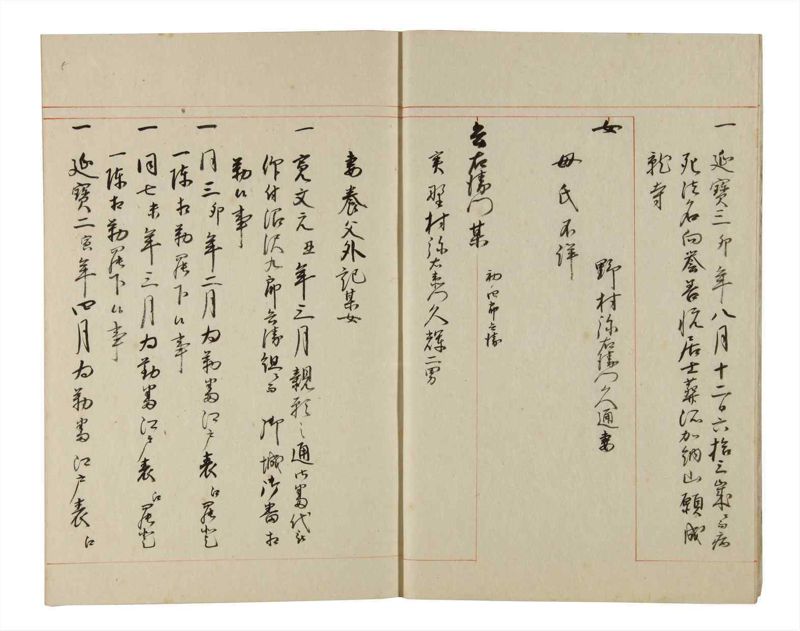 一 延寳三卯年八月十二日六拾三歳ニ而病
死法名向誉善悦居士葬沼加納山願成
就寺
女 野村弥右衛門久通妻
母氏不詳
吉右衛門某 初四郎兵衛
実野村弥右衛門久輝二男
妻養父外記某女
一 寛文元丑年三月親願之通御番代被
仰付沼沢九郎兵衛組ニ而御城御番相
勤候事
一 同三卯年二月為勤番江戸表江罷登
一 陳相勤罷下候事
一 同七未年三月為勤番江戸表江罷登
一 陳相勤罷下候事
一 延寳二寅年四月為勤番江戸表江